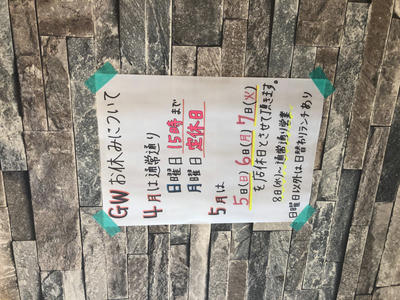 GWお休みについて
4月は通常通り
日曜日15時まで
月曜日定休日
5月は
5日(日)6日(月)7日(火)
を店休日とさせて頂きます。
8日(水)～通常通り営業
日曜日以外は日替わりランチあり